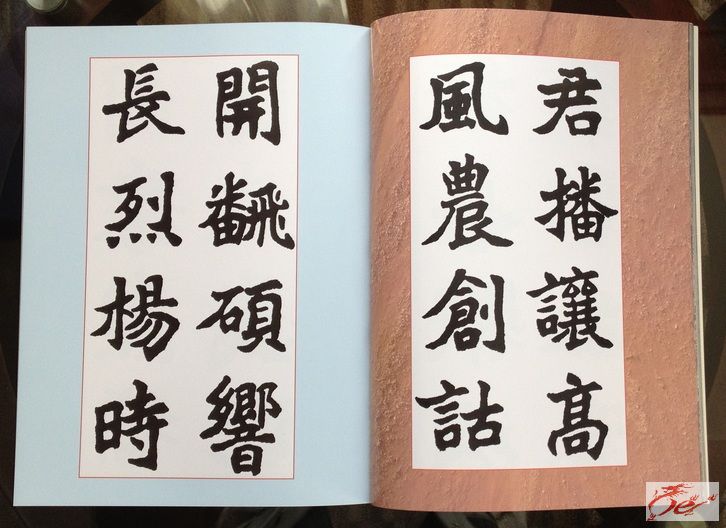 君播讓高
風農創詁
開飜碩響
長烈楊時